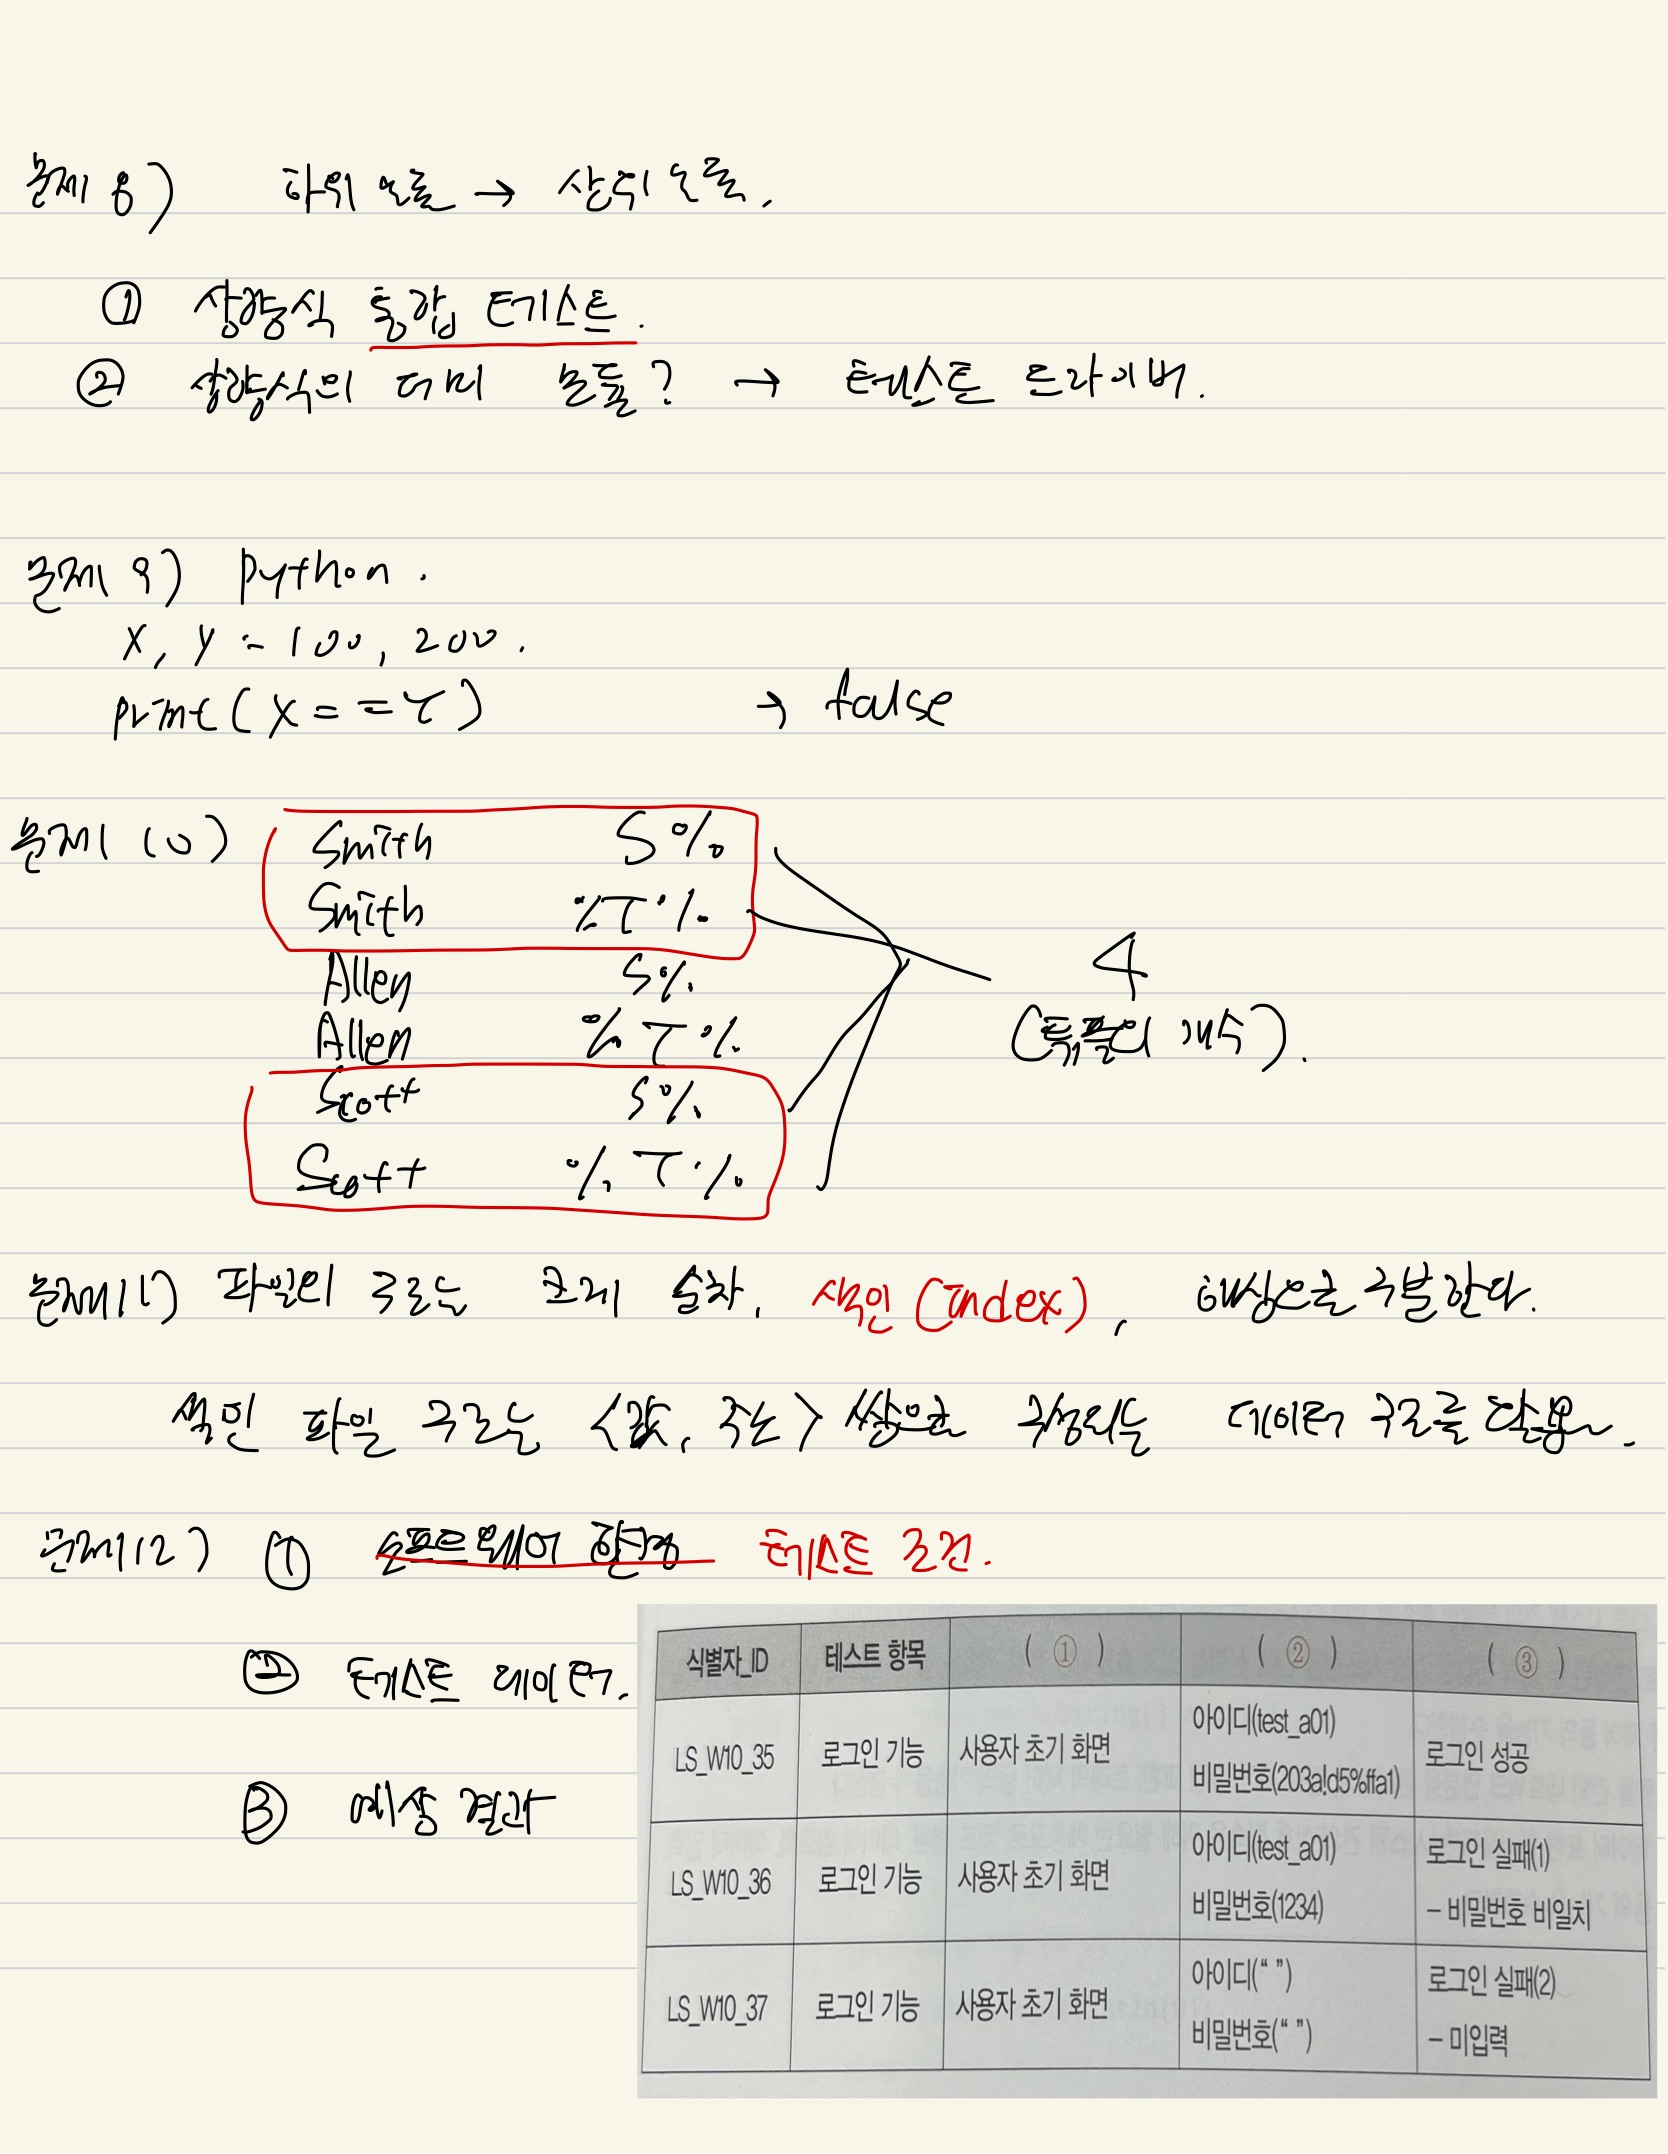 문제 8) 하위 모듈 → 상위 모듈.
① 상향식 통합 테스트.
② 상향식의 더미 모듈? → 테스트 드라이버.
문제 9) Python.
X, Y = 100, 200.
print(X==Y) → false
문제 10) Smith S%
Smith %T%
Allen S%
Allen %T%
Scott S%
Scott %T%
4
(튜플의 개수).
문제11) 파일의 구조는 크게 순차, 색인(Index), 해싱으로 구분한다.
색인 파일 구조는 <값, 주소> 쌍으로 구성되는 데이터 구조를 활용.
문제12) ① 소프트웨어 환경 테스트 조건.
② 테스트 데이터.
③ 예상 결과
식별자_ID 테스트 항목 ( ① ) ( ② ) ( ③ )
LS_W10_35 로그인 기능 사용자 초기 화면 아이디(test_a01) 로그인 성공
비밀번호(203a!d5%ffa1)
LS_W10_36 로그인 기능 사용자 초기 화면 아이디(test_a01) 로그인 실패(1)
비밀번호(1234) – 비밀번호 비일치
LS_W10_37 로그인 기능 사용자 초기 화면 아이디(“ ”) 로그인 실패(2)
비밀번호(“ ”) – 미입력